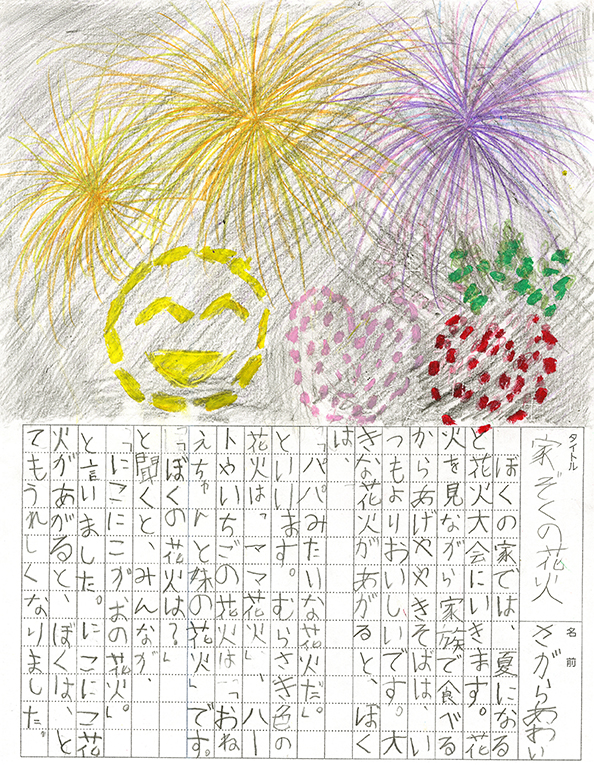 タイトル
家ぞくの花火
名前
さがらあわい
ぼくの家では、夏になる
と花火大会にいきます。花
火を見ながら家族で食べる
からあげややきそばは、い
つもよりおいしいです。大
きな花火があがると、ぼく
は、
「パパみたいな花火だ。」
といいます。むらさき色の
花火は「ママ花火」、ハー
トやいちごの花火は「おね
えちゃんと妹の花火」です。
「ぼくの花火は?」
と聞くと、みんなが、
「にこにこがおの花火。」
と言いました。にこにこ花
火があがると、ぼくは、と
てもうれしくなりました。